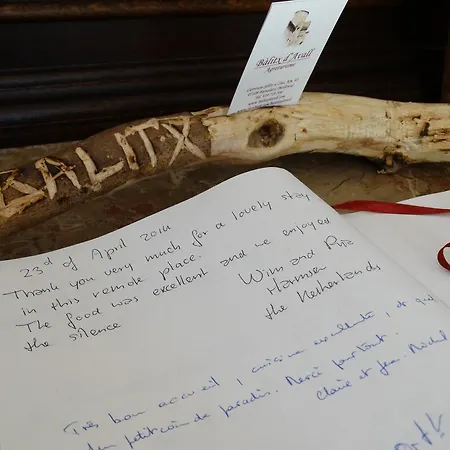 Bàlitx d'Avall
Agroturisme
BALITX
23rd of April 2014
Thank you very much for a lovely stay
in this remote place.
The food was excellent and we enjoyed
the silence
Wim and Ria
Harmsen
the Netherlands
Très bon accueil, cuisine excellente, et quel
petit coin de paradis. Merci pour tout.
Claire et Jean-Michel